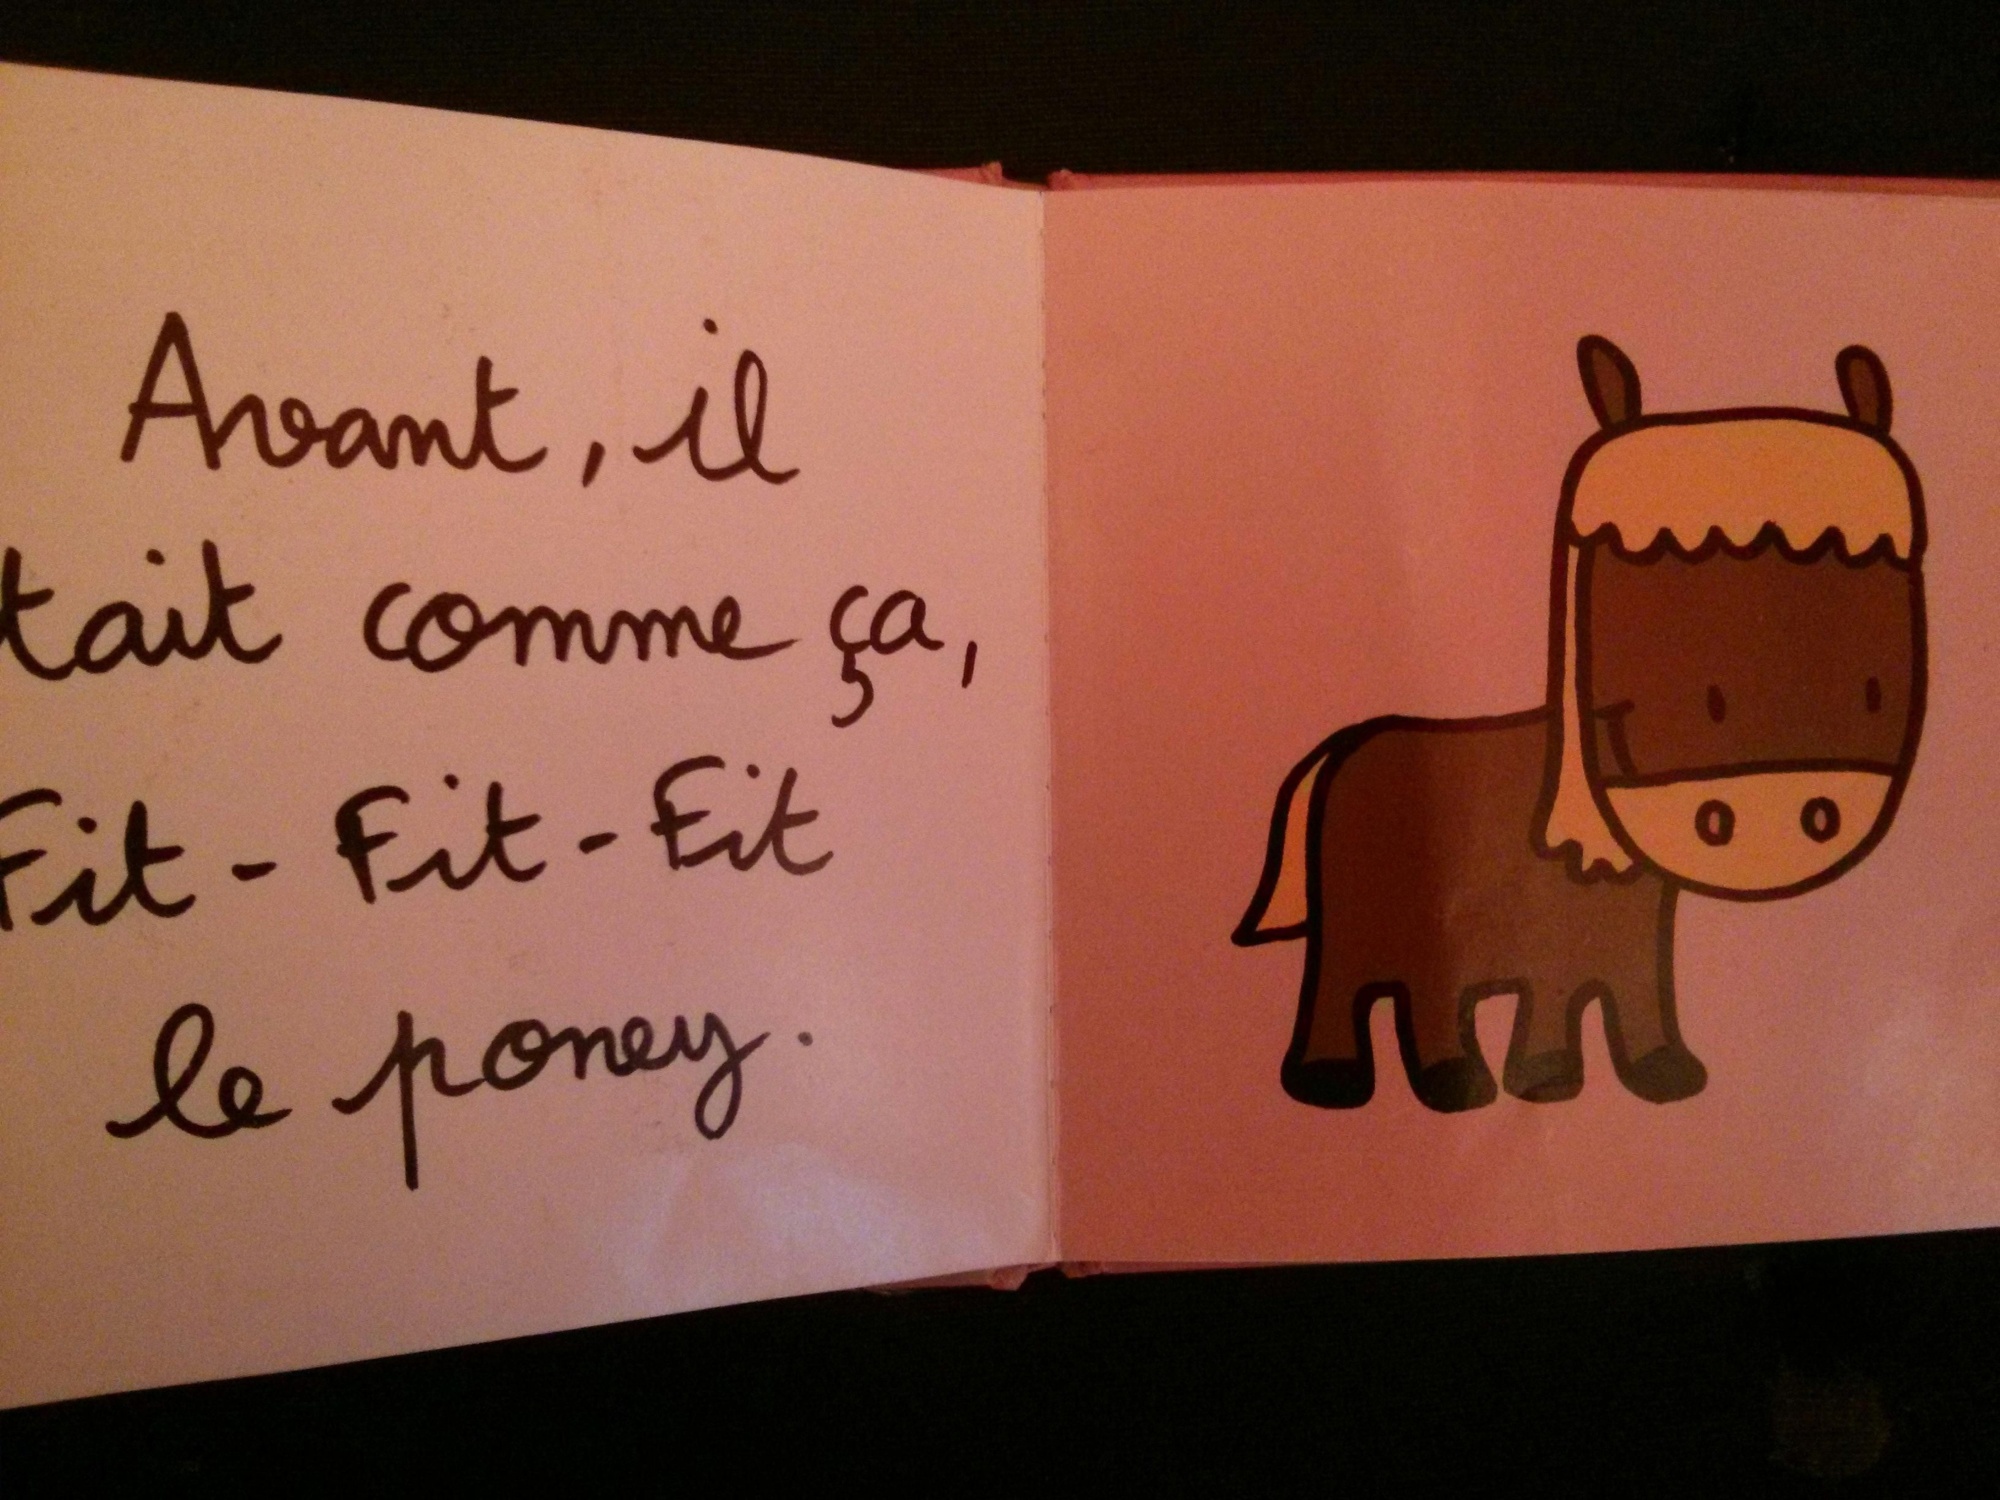 Avant, il
tait comme ça,
Fit - Fit - Fit
le poney.